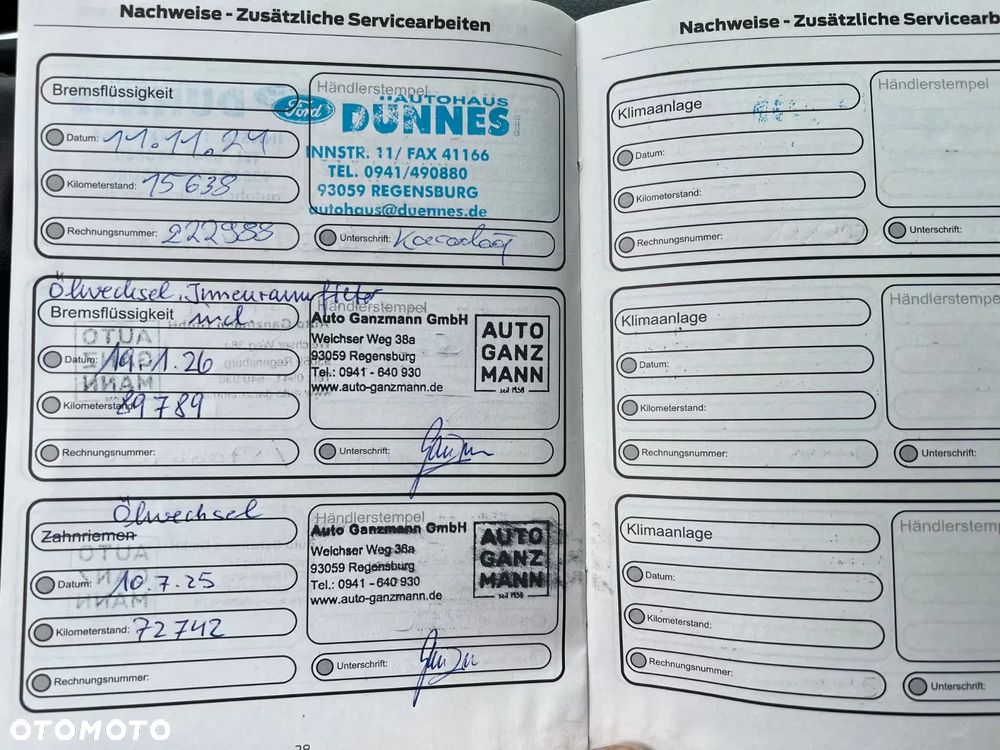 Nachweise - Zusätzliche Servicearbeiten
Bremsflüssigkeit
Datum: 11.11.21
Kilometerstand: 15638
Rechnungsnummer: 222988
Händlerstempel
Ford
AUTOHAUS
DÜNNES
INNSTR. 11/ FAX 41166
TEL. 0941/490880
93059 REGENSBURG
autohaus@duennes.de
Unterschrift:
Ölwechsel, Innenraumfilter
Bremsflüssigkeit und
Datum: 19.1.26
Kilometerstand: 89789
Rechnungsnummer:
Händlerstempel
Auto Ganzmann GmbH
Weichser Weg 38a
93059 Regensburg
Tel.: 0941 - 640 930
www.auto-ganzmann.de
AUTO
GANZ
MANN
seit 1958
Unterschrift:
Ölwechsel
Zahnriemen
Datum: 10.7.25
Kilometerstand: 72742
Rechnungsnummer:
Händlerstempel
Auto Ganzmann GmbH
Weichser Weg 38a
93059 Regensburg
Tel.: 0941 - 640 930
www.auto-ganzmann.de
AUTO
GANZ
MANN
seit 1958
Unterschrift:
28
Nachweise - Zusätzliche Servicearb
Klimaanlage
Datum:
Kilometerstand:
Rechnungsnummer:
Händlerstempel
Unterschrift:
Klimaanlage
Datum:
Kilometerstand:
Rechnungsnummer:
Händlerstempe
Unterschrift:
Klimaanlage
Datum:
Kilometerstand:
Rechnungsnummer:
Händlerstem
Unterschrift:
OTOMOTO